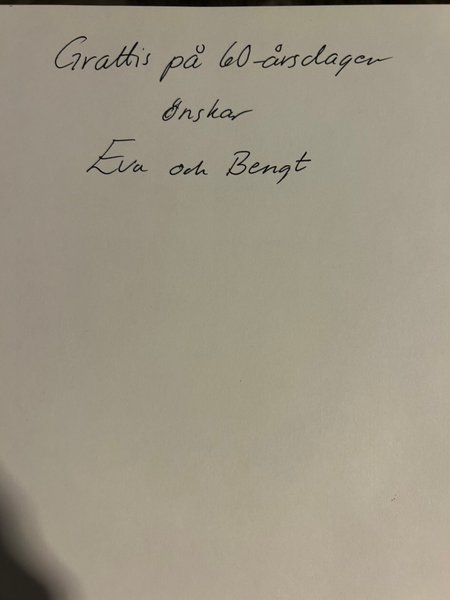 Grattis på 60-årsdagen
önskar
Eva och Bengt